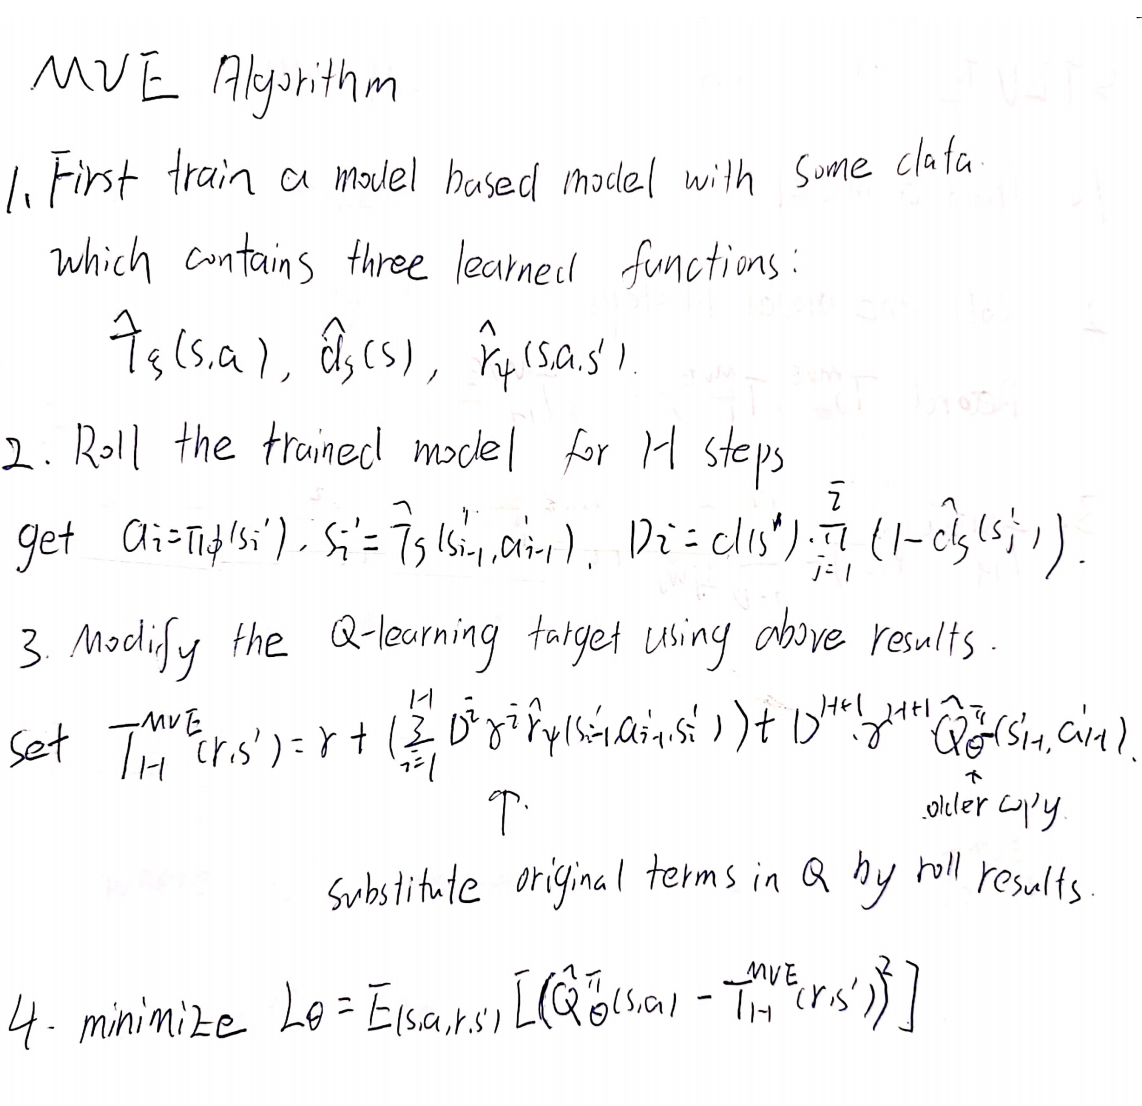 MVE Algorithm
1. First train a model based model with some data.
which contains three learned functions:
T̂ξ(s,a), d̂ξ(s), r̂ψ(s,a,s').
2. Roll the trained model for H steps
get ai=πϕ(si'), si'=T̂ξ(s'i-1,a'i-1), Di=d(s')·∏_{j=1}^{i}(1-d̂ξ(s'j)).
3. Modify the Q-learning target using above results.
Set T_H^MVE(r,s')=r+(∑_{i=1}^{H} D^i γ^i r̂ψ(s'i-1,a'i-1,si'))+D^{H+1}·γ^{H+1} Q̂^π_θ-(s'H,a'H).
↑ older copy.
↑.
substitute original terms in Q by roll results.
4. minimize Lθ=E(s,a,r,s')[(Q̂^π_θ(s,a)-T_H^MVE(r,s'))^2]